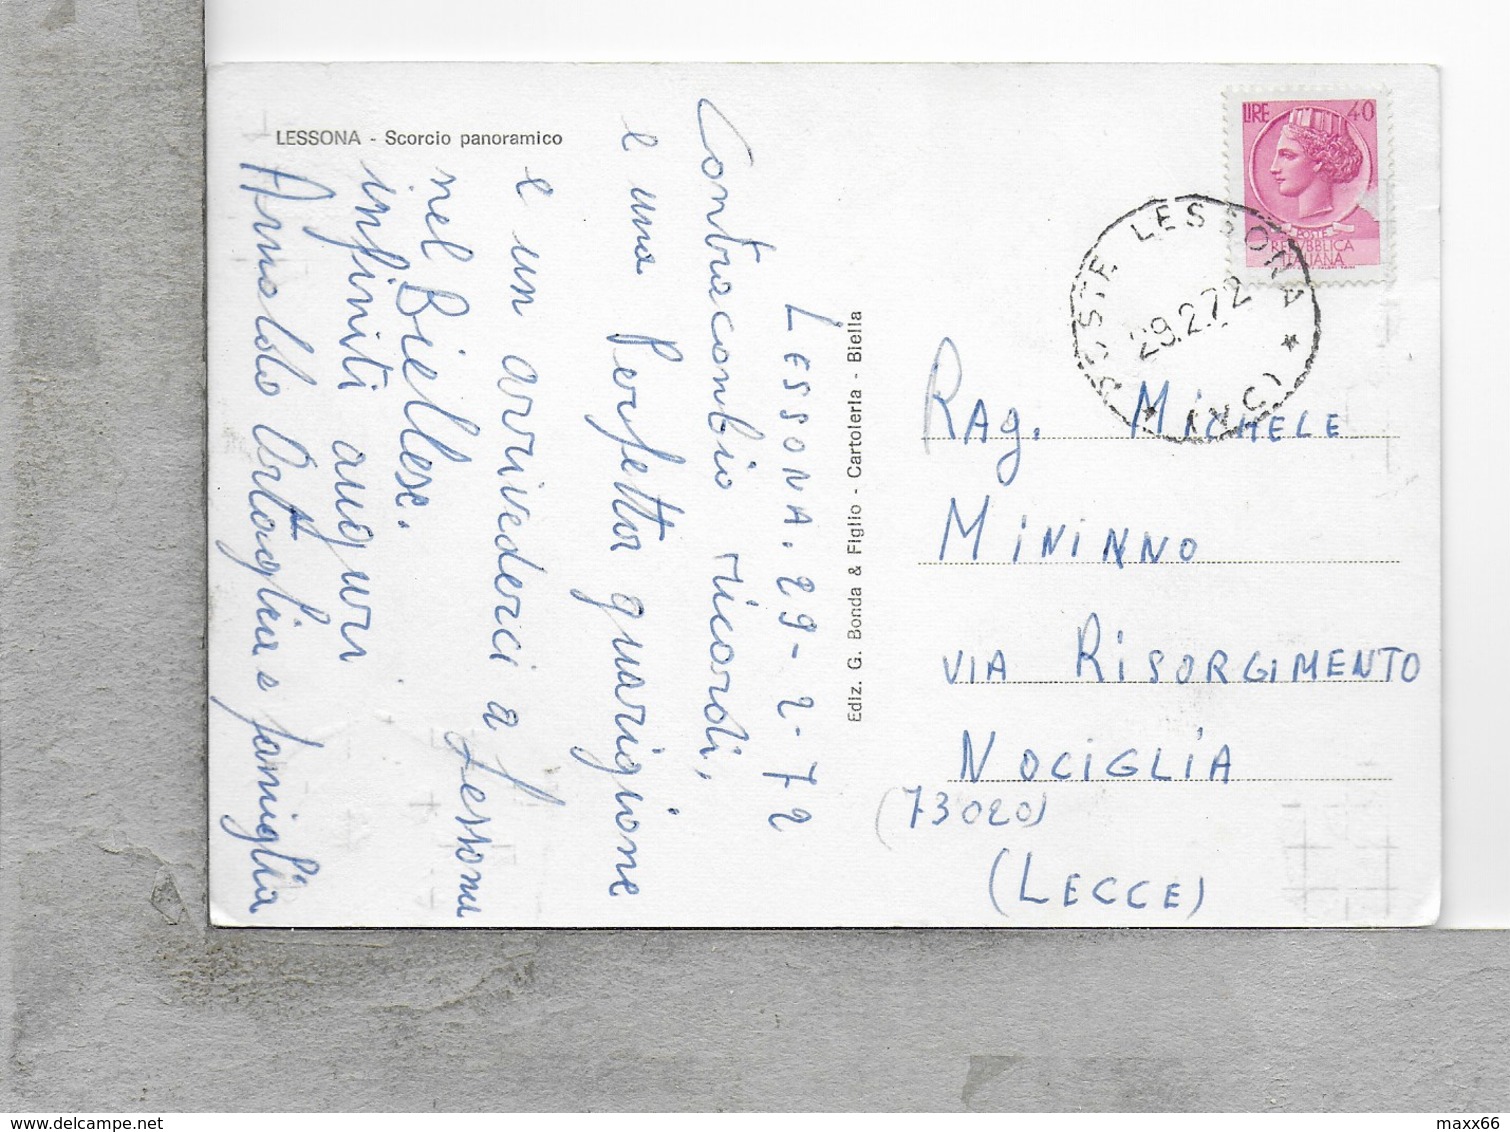 LESSONA - Scorcio panoramico
LESSONA. 29-2-72
Contraccambio ricordi,
e una Perfetta guarigione
e un arrivederci a Lessona
nel Biellese.
infiniti auguri
Arnaldo Artaglia e famiglia
Ediz. G. Bonda & Figlio - Cartoleria - Biella
LIRE 40
POSTE
REPVBBLICA
ITALIANA
POSTE LESSONA
29.2.72
* (VC) *
RAG. MICHELE
MININNO
VIA RISORGIMENTO
NOCIGLIA
(73020)
(LECCE)
delcampe.net
maxx66